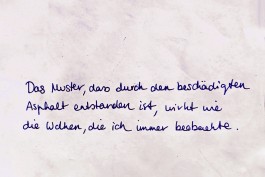 Das Muster, das durch den beschädigten
Asphalt entstanden ist, wirkt wie
die Wolken, die ich immer beobachte.